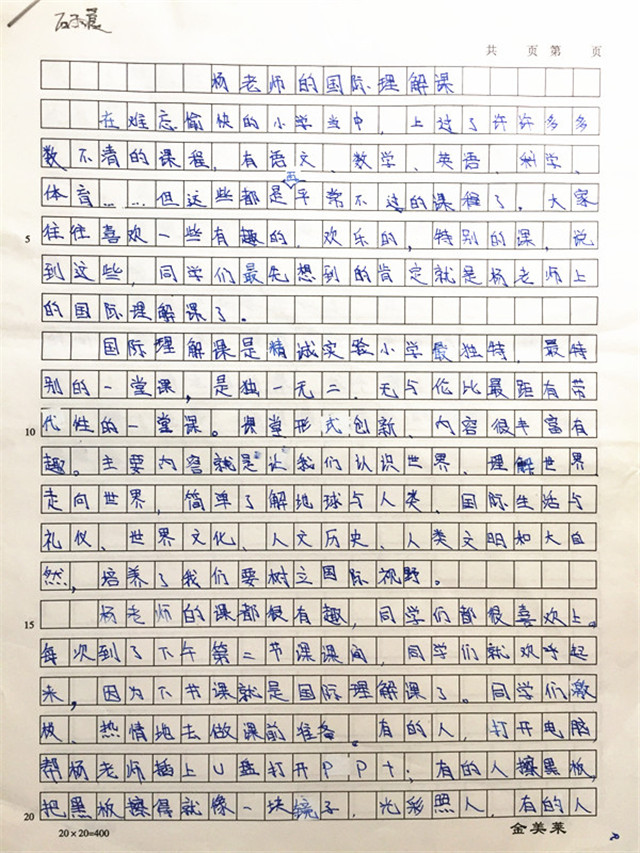 石子晨
共 页 第 页
杨老师的国际理解课
在难忘愉快的小学当中，上过了许许多多
数不清的课程，有语文、数学、英语、科学、
体育……但这些都是再平常不过的课程了。大家
往往喜欢一些有趣的，欢乐的，特别的课，说
5
到这些，同学们最先想到的肯定就是杨老师上
的国际理解课了。
国际理解课是精诚实验小学最独特，最特
别的一堂课，是独一无二、无与伦比最距有带
代性的一堂课。课堂形式创新、内容很丰富有
10
趣。主要内容就是让我们认识世界、理解世界
走向世界，简单了解地球与人类、国际生活与
礼仪、世界文化、人文历史、人类文明和大自
然，培养了我们要树立国际视野。
杨老师的课都很有趣，同学们都很喜欢上。
15
每次到了下午第二节课课间，同学们就欢呼起
来，因为下节课就是国际理解课了。同学们激
极、热情地去做课前准备。有的人，打开电脑，
帮杨老师插上U盘打开PPt；有的人擦黑板，
把黑板擦得就像一块镜子，光彩照人，有的人
20
20×20=400
金美莱